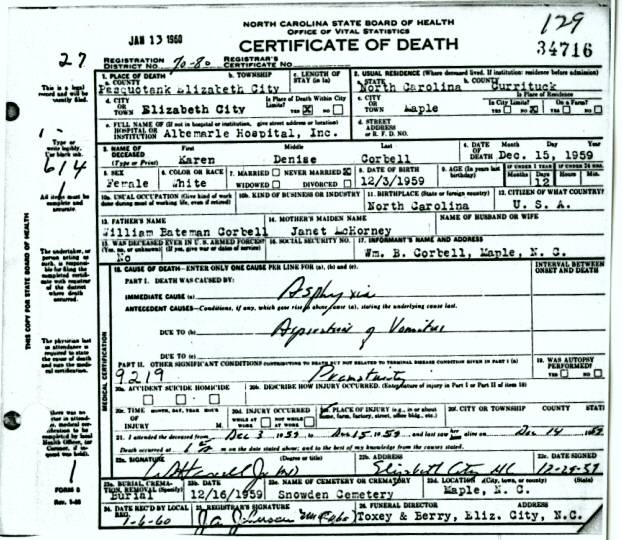 NORTH CAROLINA STATE BOARD OF HEALTH
OFFICE OF VITAL STATISTICS
CERTIFICATE OF DEATH
JAN 13 1960
129
34716
27
REGISTRATION DISTRICT NO. 70-80 REGISTRAR'S CERTIFICATE NO.
1. PLACE OF DEATH a. COUNTY b. TOWNSHIP c. LENGTH OF STAY (in 1a)
Pasquotank Elizabeth City
2. USUAL RESIDENCE (Where deceased lived. If institution: residence before admission)
a. STATE b. COUNTY
North Carolina Currituck
d. CITY OR TOWN Elizabeth City Is Place of Death Within City Limits? YES X NO
c. CITY OR TOWN Maple Is Place of Residence In City Limits? YES NO On a Farm? YES NO
e. FULL NAME OF (If not in hospital or institution, give street address or location) HOSPITAL OR INSTITUTION Albemarle Hospital, Inc.
d. STREET ADDRESS OR R. F. D. NO.
3. NAME OF DECEASED (Type or Print) First Middle Last
Karen Denise Corbell
4. DATE OF DEATH Month Day Year
Dec. 15, 1959
5. SEX Female
6. COLOR OR RACE White
7. MARRIED NEVER MARRIED X WIDOWED DIVORCED
8. DATE OF BIRTH 12/3/1959
9. AGE (In years last birthday) IF UNDER 1 YEAR Months Days 12 IF UNDER 24 HRS. Hours Min.
10a. USUAL OCCUPATION (Give kind of work done during most of working life, even if retired)
10b. KIND OF BUSINESS OR INDUSTRY
11. BIRTHPLACE (State or foreign country) North Carolina
12. CITIZEN OF WHAT COUNTRY? U. S. A.
13. FATHER'S NAME William Bateman Corbell
14. MOTHER'S MAIDEN NAME Janet McHorney
NAME OF HUSBAND OR WIFE
15. WAS DECEASED EVER IN U. S. ARMED FORCES? (Yes, no, or unknown) (If yes, give war or dates of service) No
16. SOCIAL SECURITY NO.
17. INFORMANT'S NAME AND ADDRESS
Wm. B. Corbell, Maple, N. C.
18. CAUSE OF DEATH—ENTER ONLY ONE CAUSE PER LINE FOR (a), (b) and (c).
INTERVAL BETWEEN ONSET AND DEATH
PART I. DEATH WAS CAUSED BY:
IMMEDIATE CAUSE (a) Asphyxia
ANTECEDENT CAUSES—Conditions, if any, which gave rise to above cause (a), stating the underlying cause last.
DUE TO (b) Aspiration of Vomitus
DUE TO (c)
PART II. OTHER SIGNIFICANT CONDITIONS CONTRIBUTING TO DEATH BUT NOT RELATED TO TERMINAL DISEASE CONDITION GIVEN IN PART I (a)
9219 Prematurity
19. WAS AUTOPSY PERFORMED? YES NO
20a. ACCIDENT SUICIDE HOMICIDE
20b. DESCRIBE HOW INJURY OCCURRED. (Enter nature of injury in Part I or Part II of item 18)
20c. TIME OF INJURY MONTH, DAY, YEAR HOUR M.
20d. INJURY OCCURRED WHILE AT WORK NOT WHILE AT WORK
20e. PLACE OF INJURY (e.g., in or about home, farm, factory, street, office bldg., etc.)
20f. CITY OR TOWNSHIP COUNTY STATE
21. I attended the deceased from Dec 3 1959 to Dec 15 1959 and last saw her alive on Dec 14 1959
Death occurred at m on the date stated above; and to the best of my knowledge from the causes stated.
22a. SIGNATURE (Degree or title)
22b. ADDRESS Elizabeth City NC
22c. DATE SIGNED 12-29-59
23a. BURIAL, CREMATION, REMOVAL (Specify) Burial
23b. DATE 12/16/1959
23c. NAME OF CEMETERY OR CREMATORY Snowden Cemetery
23d. LOCATION (City, town, or county) (State) Maple, N. C.
24. DATE REC'D BY LOCAL REG. 1-6-60
25. REGISTRAR'S SIGNATURE
26. FUNERAL DIRECTOR ADDRESS
Toxey & Berry, Eliz. City, N.C.
This is a legal record and will be permanently filed.
Type or write legibly. Use black ink.
614
All items must be complete and accurate.
THIS COPY FOR STATE BOARD OF HEALTH
MEDICAL CERTIFICATION
1
FORM 8